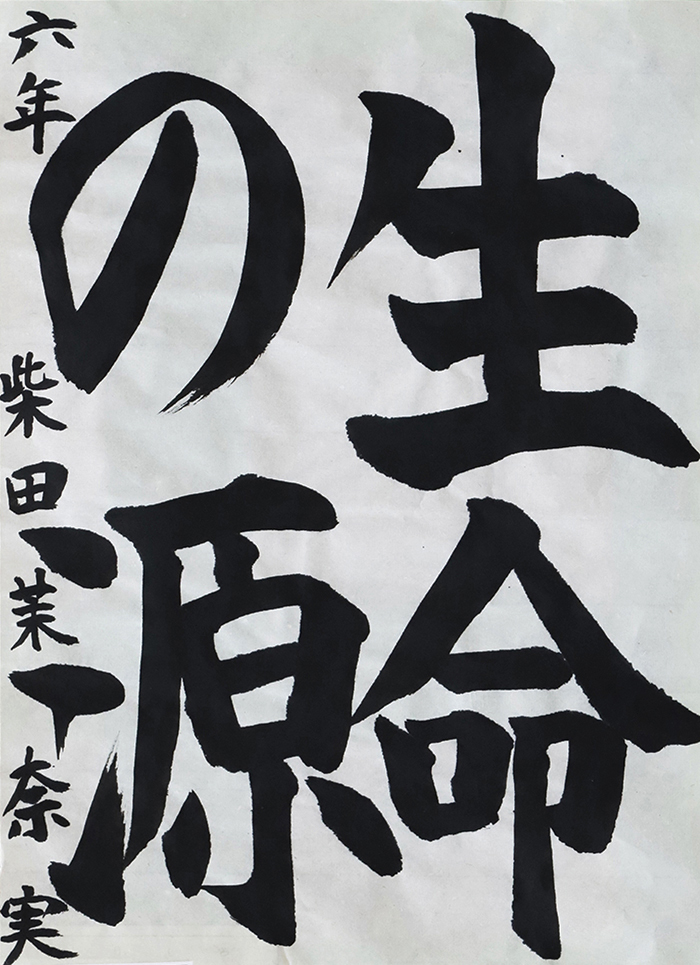 生命
の源
六年 柴田茉奈実